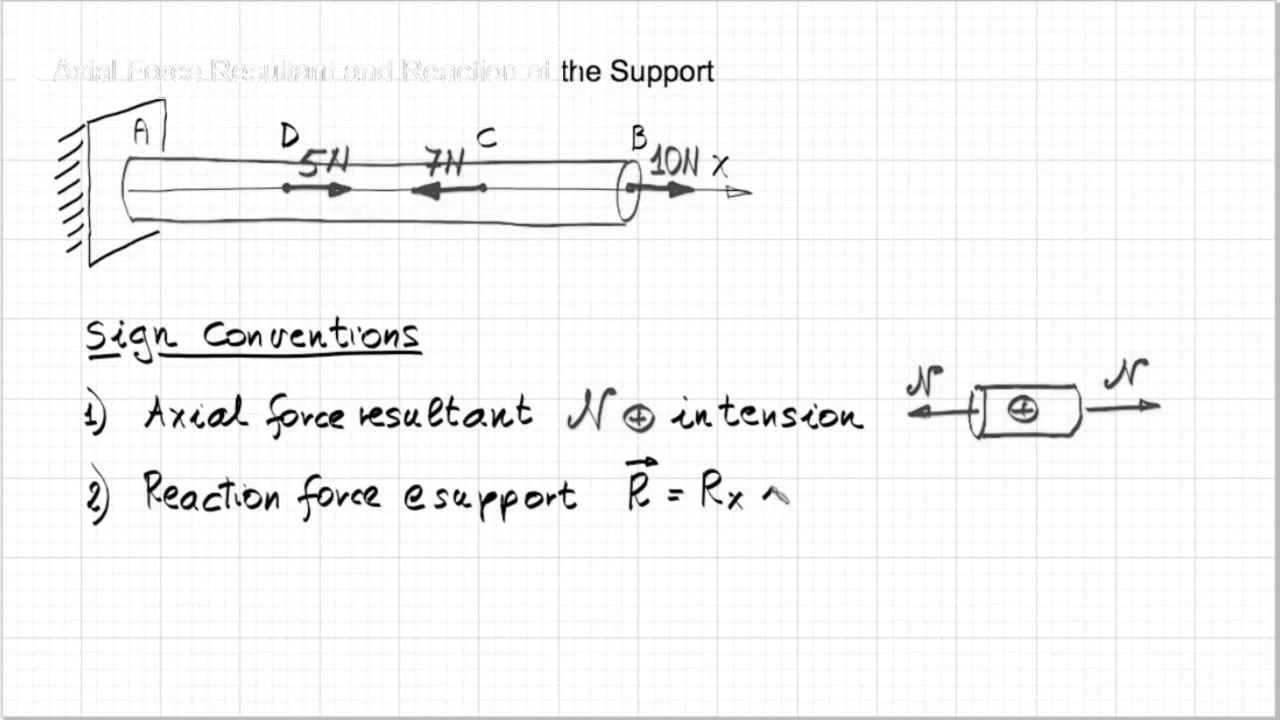 Axial Force Resultant and Reaction at the Support
A D C B
5N 7N 10N x
Sign Conventions
1) Axial force resultant N ⊕ in tension
N ⊕ N
2) Reaction force @ support R⃗ = Rx